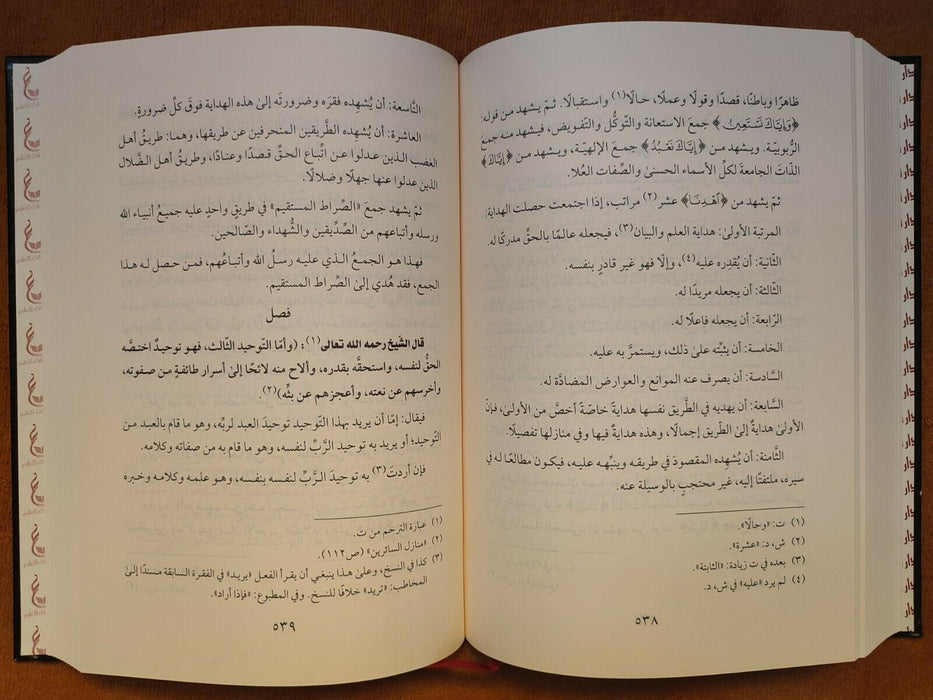 ظاهرًا وباطنًا، قصدًا وقولًا وعملًا، حالًا(١) واستقبالًا. ثمّ يشهد من قوله:
﴿وَإِيَّاكَ نَسْتَعِينُ﴾ جمعَ الاستعانة والتّوكُّل والتّفويض، فيشهد منه جمعَ
الرُّبوبيّة. ويشهد من ﴿إِيَّاكَ نَعْبُدُ﴾ جمعَ الإلهيّة، ويشهد من ﴿إِيَّاكَ﴾
الذّاتَ الجامعةَ لكلِّ الأسماء الحسنى والصِّفات العُلا.
ثمّ يشهد من ﴿اهْدِنَا﴾ عشر(٢) مراتب، إذا اجتمعت حصلت الهداية:
المرتبة الأولى: هداية العلم والبيان(٣)، فيجعله عالمًا بالحقِّ مدركًا له.
الثّانية: أن يُقدِره عليه(٤)، وإلّا فهو غير قادرٍ بنفسه.
الثّالثة: أن يجعله مريدًا له.
الرّابعة: أن يجعله فاعلًا له.
الخامسة: أن يثبِّته على ذلك، ويستمرَّ به عليه.
السّادسة: أن يصرف عنه الموانع والعوارض المضادَّة له.
السّابعة: أن يهديه في الطّريق نفسها هدايةً خاصّةً أخصَّ من الأولى، فإنّ
الأولى هدايةٌ إلى الطّريق إجمالًا، وهذه هدايةٌ فيها وفي منازلها تفصيلًا.
الثّامنة: أن يُشهِده المقصودَ في طريقه وينبِّهه عليه، فيكون مطالعًا له في
سيره، ملتفتًا إليه، غير محتجبٍ بالوسيلة عنه.
(١) ت: «وحالًا».
(٢) ش، د: «عشرة».
(٣) بعده في ت زيادة: «الثابتة».
(٤) لم يرد «عليه» في ش، د.
٥٣٨
التّاسعة: أن يُشهِده فقرَه وضرورتَه إلى هذه الهداية فوقَ كلِّ ضرورةٍ.
العاشرة: أن يُشهِده الطَّريقين المنحرفين عن طريقها، وهما: طريقُ أهل
الغضب الذين عدلوا عن اتِّباع الحقِّ قصدًا وعنادًا، وطريقُ أهل الضّلال
الذين عدلوا عنها جهلًا وضلالًا.
ثمّ يشهد جمعَ «الصِّراط المستقيم» في طريقٍ واحدٍ عليه جميعُ أنبياء الله
ورسله وأتباعهم من الصِّدِّيقين والشُّهداء والصّالحين.
فهذا هو الجمعُ الذي عليه رسلُ الله وأتباعُهم، فمن حصل له هذا
الجمع، فقد هُدي إلى الصِّراط المستقيم.
فصل
قال الشيخ رحمه الله تعالى(١): (وأمّا التّوحيد الثّالث، فهو توحيدٌ اختصَّه
الحقُّ لنفسه، واستحقَّه بقدره، وألاح منه لائحًا إلى أسرار طائفةٍ من صفوته،
وأخرسهم عن نعته، وأعجزهم عن بثِّه)(٢).
فيقال: إمّا أن يريد بهذا التّوحيد توحيدَ العبد لربِّه، وهو ما قام بالعبد من
التّوحيد؛ أو يريد به توحيد الرَّبِّ لنفسه، وهو ما قام به من صفاته وكلامه.
فإن أردتَ(٣) به توحيدَ الرَّبِّ لنفسه بنفسه، وهو علمه وكلامه وخبره
(١) عبارة الترحم من ت.
(٢) «منازل السائرين» (ص١١٢).
(٣) كذا في النسخ، وعلى هذا ينبغي أن يقرأ الفعل «يريد» في الفقرة السابقة مسندًا إلى
المخاطب: «تريد» خلافًا للنسخ. وفي المطبوع: «فإذا أراد».
٥٣٩